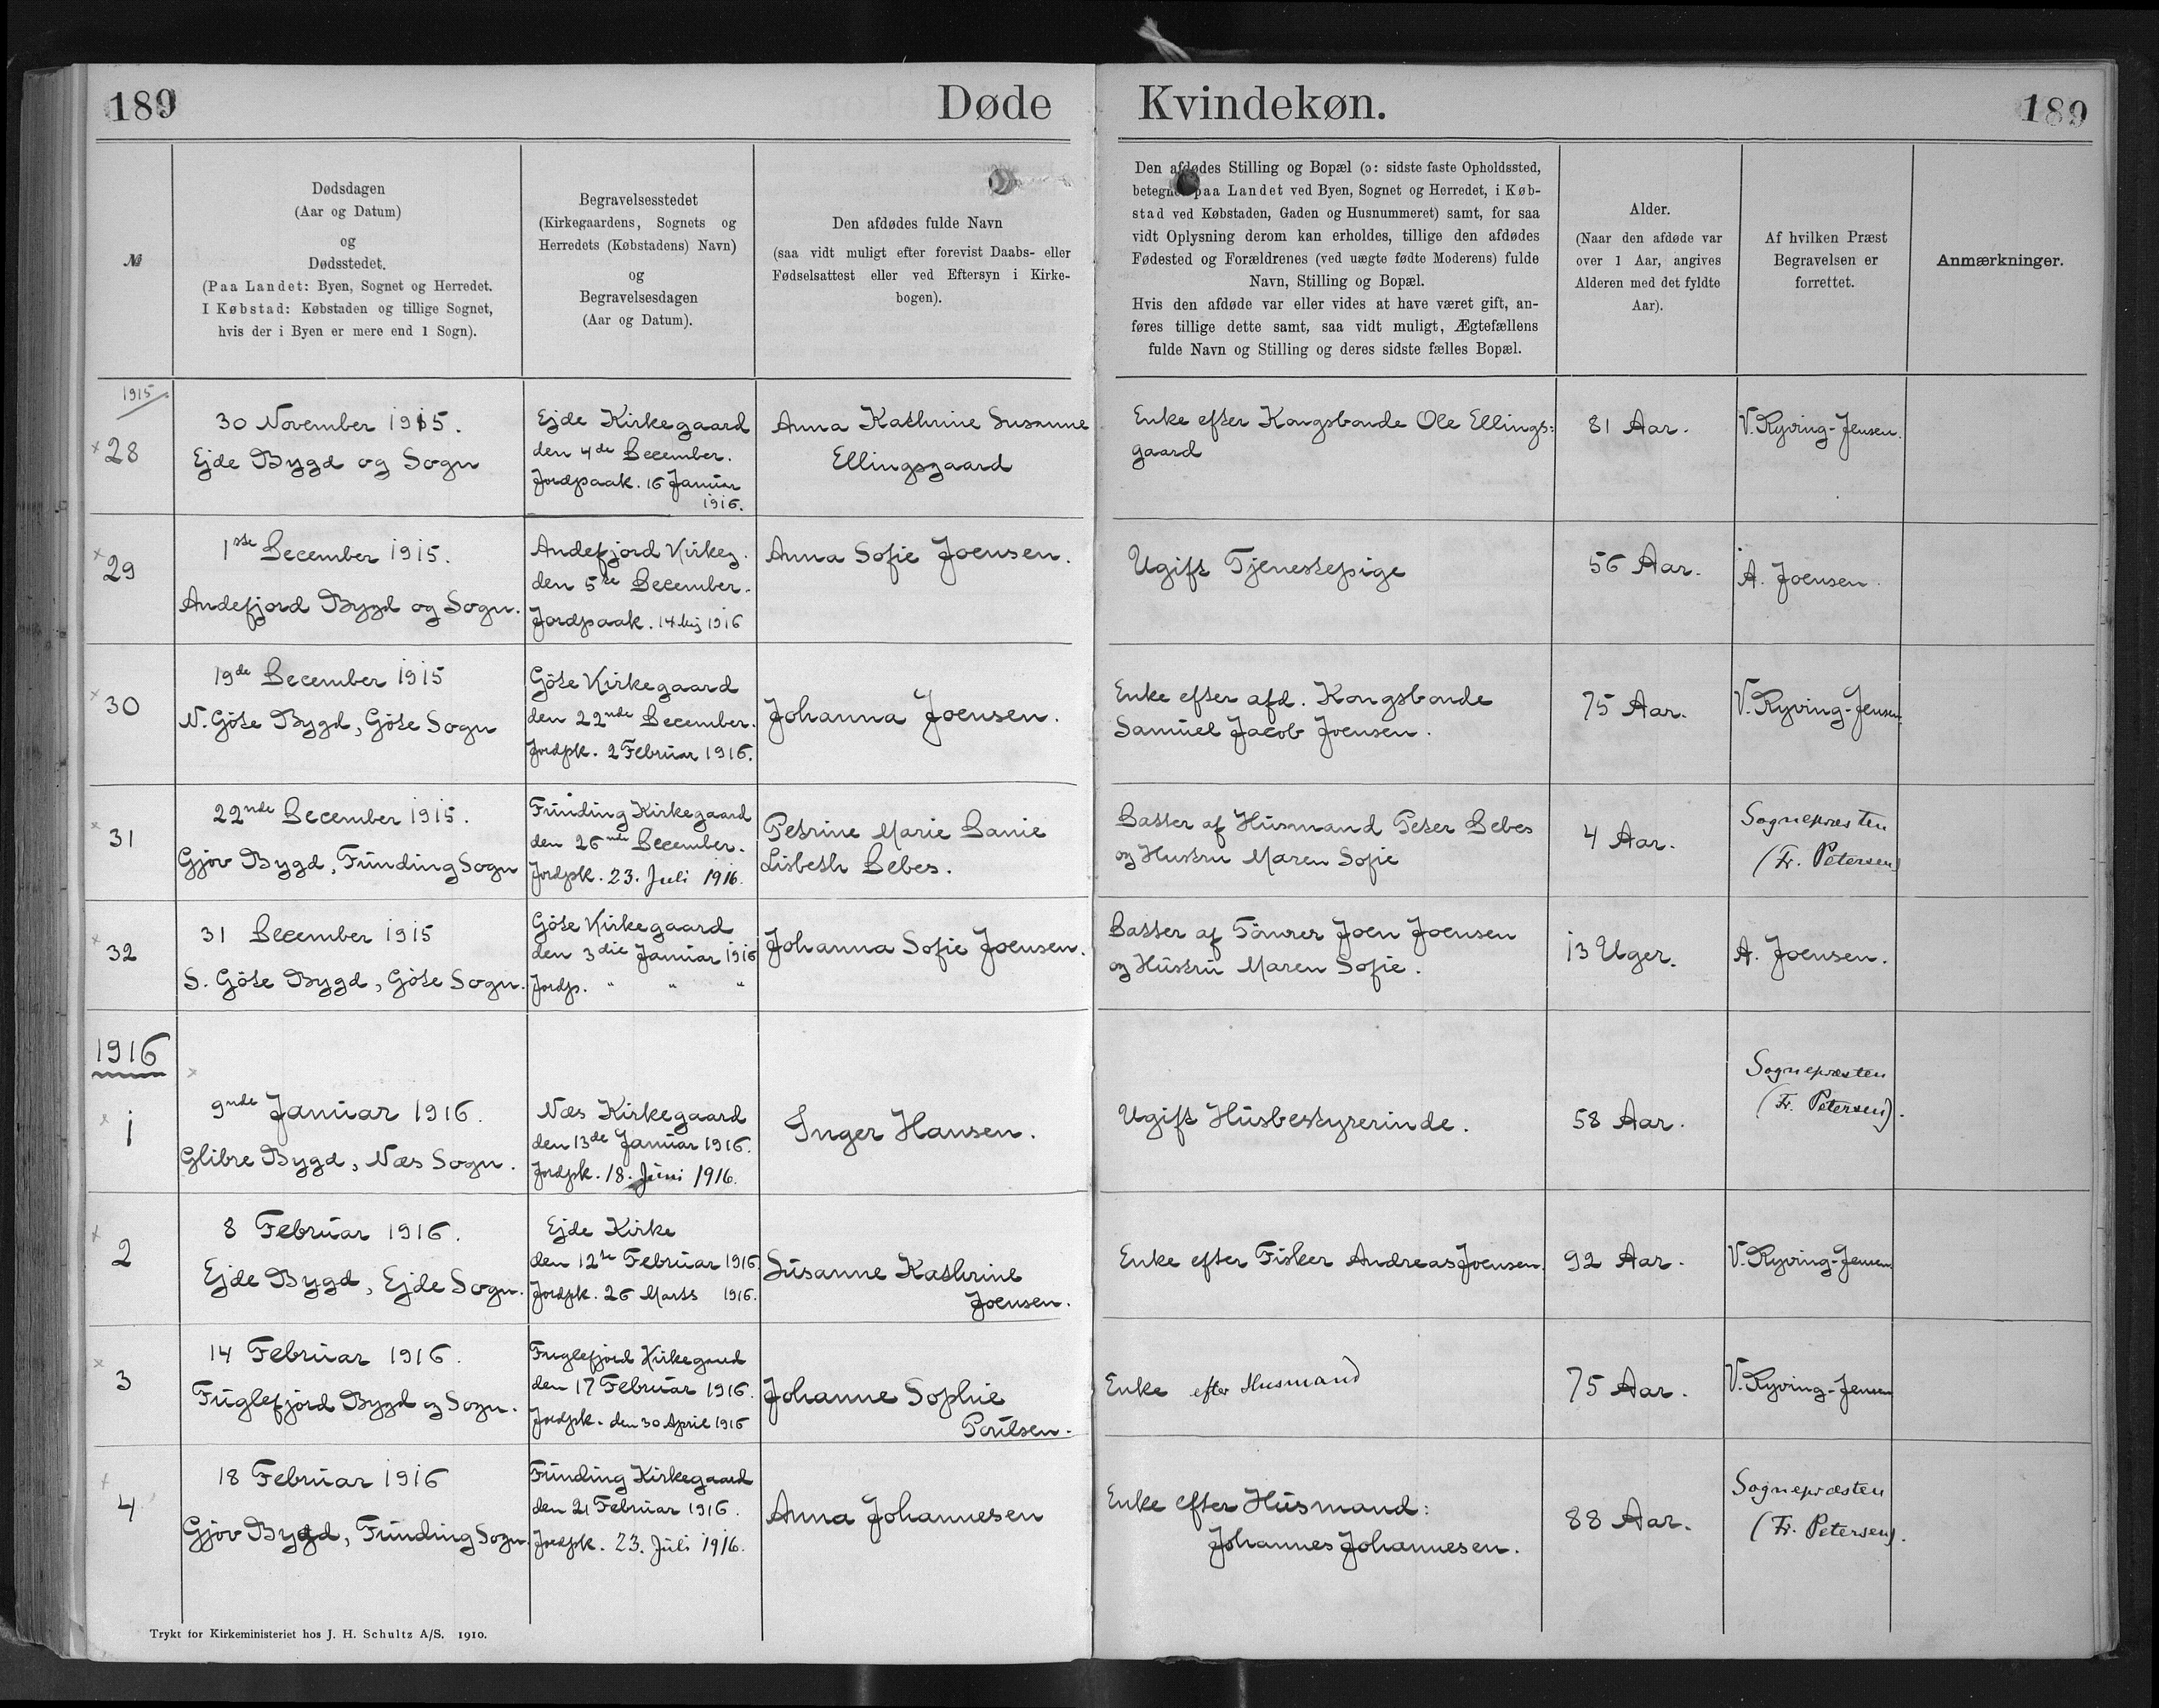 189
Døde
Kvindekøn.
189
№
Dødsdagen
(Aar og Datum)
og
Dødsstedet.
(Paa Landet: Byen, Sognet og Herredet.
I Købstad: Købstaden og tillige Sognet,
hvis der i Byen er mere end 1 Sogn).
Begravelsesstedet
(Kirkegaardens, Sognets og
Herredets (Købstadens) Navn)
og
Begravelsesdagen
(Aar og Datum).
Den afdødes fulde Navn
(saa vidt muligt efter forevist Daabs- eller
Fødselsattest eller ved Eftersyn i Kirke-
bogen).
Den afdødes Stilling og Bopæl (ɔ: sidste faste Opholdssted,
betegnet paa Landet ved Byen, Sognet og Herredet, i Køb-
stad ved Købstaden, Gaden og Husnummeret) samt, for saa
vidt Oplysning derom kan erholdes, tillige den afdødes
Fødested og Forældrenes (ved uægte fødte Moderens) fulde
Navn, Stilling og Bopæl.
Hvis den afdøde var eller vides at have været gift, an-
føres tillige dette samt, saa vidt muligt, Ægtefællens
fulde Navn og Stilling og deres sidste fælles Bopæl.
Alder.
(Naar den afdøde var
over 1 Aar, angives
Alderen med det fyldte
Aar).
Af hvilken Præst
Begravelsen er
forrettet.
Anmærkninger.
1915
28
30 November 1915.
Ejde Bygd og Sogn
Ejde Kirkegaard
den 4de December.
Jordpaak. 16 Januar
1916.
Anna Kathrine Susanne
Ellingsgaard
Enke efter Kongsbonde Ole Ellings:
gaard
81 Aar.
V. Ryving-Jensen.
29
1ste December 1915.
Andefjord Bygd og Sogn.
Andefjord Kirkeg.
den 5te December.
Jordpaak. 14 Maj 1916
Anna Sofie Joensen.
Ugift Tjenestepige
56 Aar.
A. Joensen.
30
19de December 1915
N. Göte Bygd, Göte Sogn
Göte Kirkegaard
den 22nde December.
Jordpk. 2 Februar 1916.
Johanna Joensen.
Enke efter afd. Kongsbonde
Samuel Jacob Joensen.
75 Aar.
V. Ryving-Jensen.
31
22nde December 1915.
Gjov Bygd, Funding Sogn
Funding Kirkegaard
den 26nde December.
Jordpk. 23. Juli 1916.
Petrine Marie Danie
Lisbeth Debes.
Datter af Husmand Peter Debes
og Hustru Maren Sofie
4 Aar.
Sognepræsten
(Fr. Petersen)
32
31 December 1915
S. Göte Bygd, Göte Sogn.
Göte Kirkegaard
den 3die Januar 1916
Jordp. " " "
Johanna Sofie Joensen.
Datter af Tömrer Joen Joensen
og Hustru Maren Sofie.
13 Uger.
A. Joensen.
1916
1
9nde Januar 1916.
Glibre Bygd, Næs Sogn.
Næs Kirkegaard
den 13de Januar 1916.
Jordpk. 18. Juni 1916.
Inger Hansen.
Ugift Husbestyrerinde.
58 Aar.
Sognepræsten
(Fr. Petersen).
2
8 Februar 1916.
Ejde Bygd, Ejde Sogn.
Ejde Kirke
den 12te Februar 1916
Jordpk. 26 Marts 1916.
Susanne Kathrine
Joensen.
Enke efter Fisker Andreas Joensen.
92 Aar.
V. Ryving-Jensen
3
14 Februar 1916.
Fuglefjord Bygd og Sogn.
Fuglefjord Kirkegaard
den 17 Februar 1916.
Jordpk. den 30 April 1916
Johanne Sophie
Poulsen.
Enke efter Husmand
75 Aar.
V. Ryving-Jensen
4
18 Februar 1916
Gjov Bygd, Funding Sogn.
Funding Kirkegaard
den 21 Februar 1916.
Jordpk. 23. Juli 1916.
Anna Johannesen
Enke efter Husmand:
Johannes Johannesen.
88 Aar.
Sognepræsten
(Fr. Petersen).
Trykt for Kirkeministeriet hos J. H. Schultz A/S. 1910.